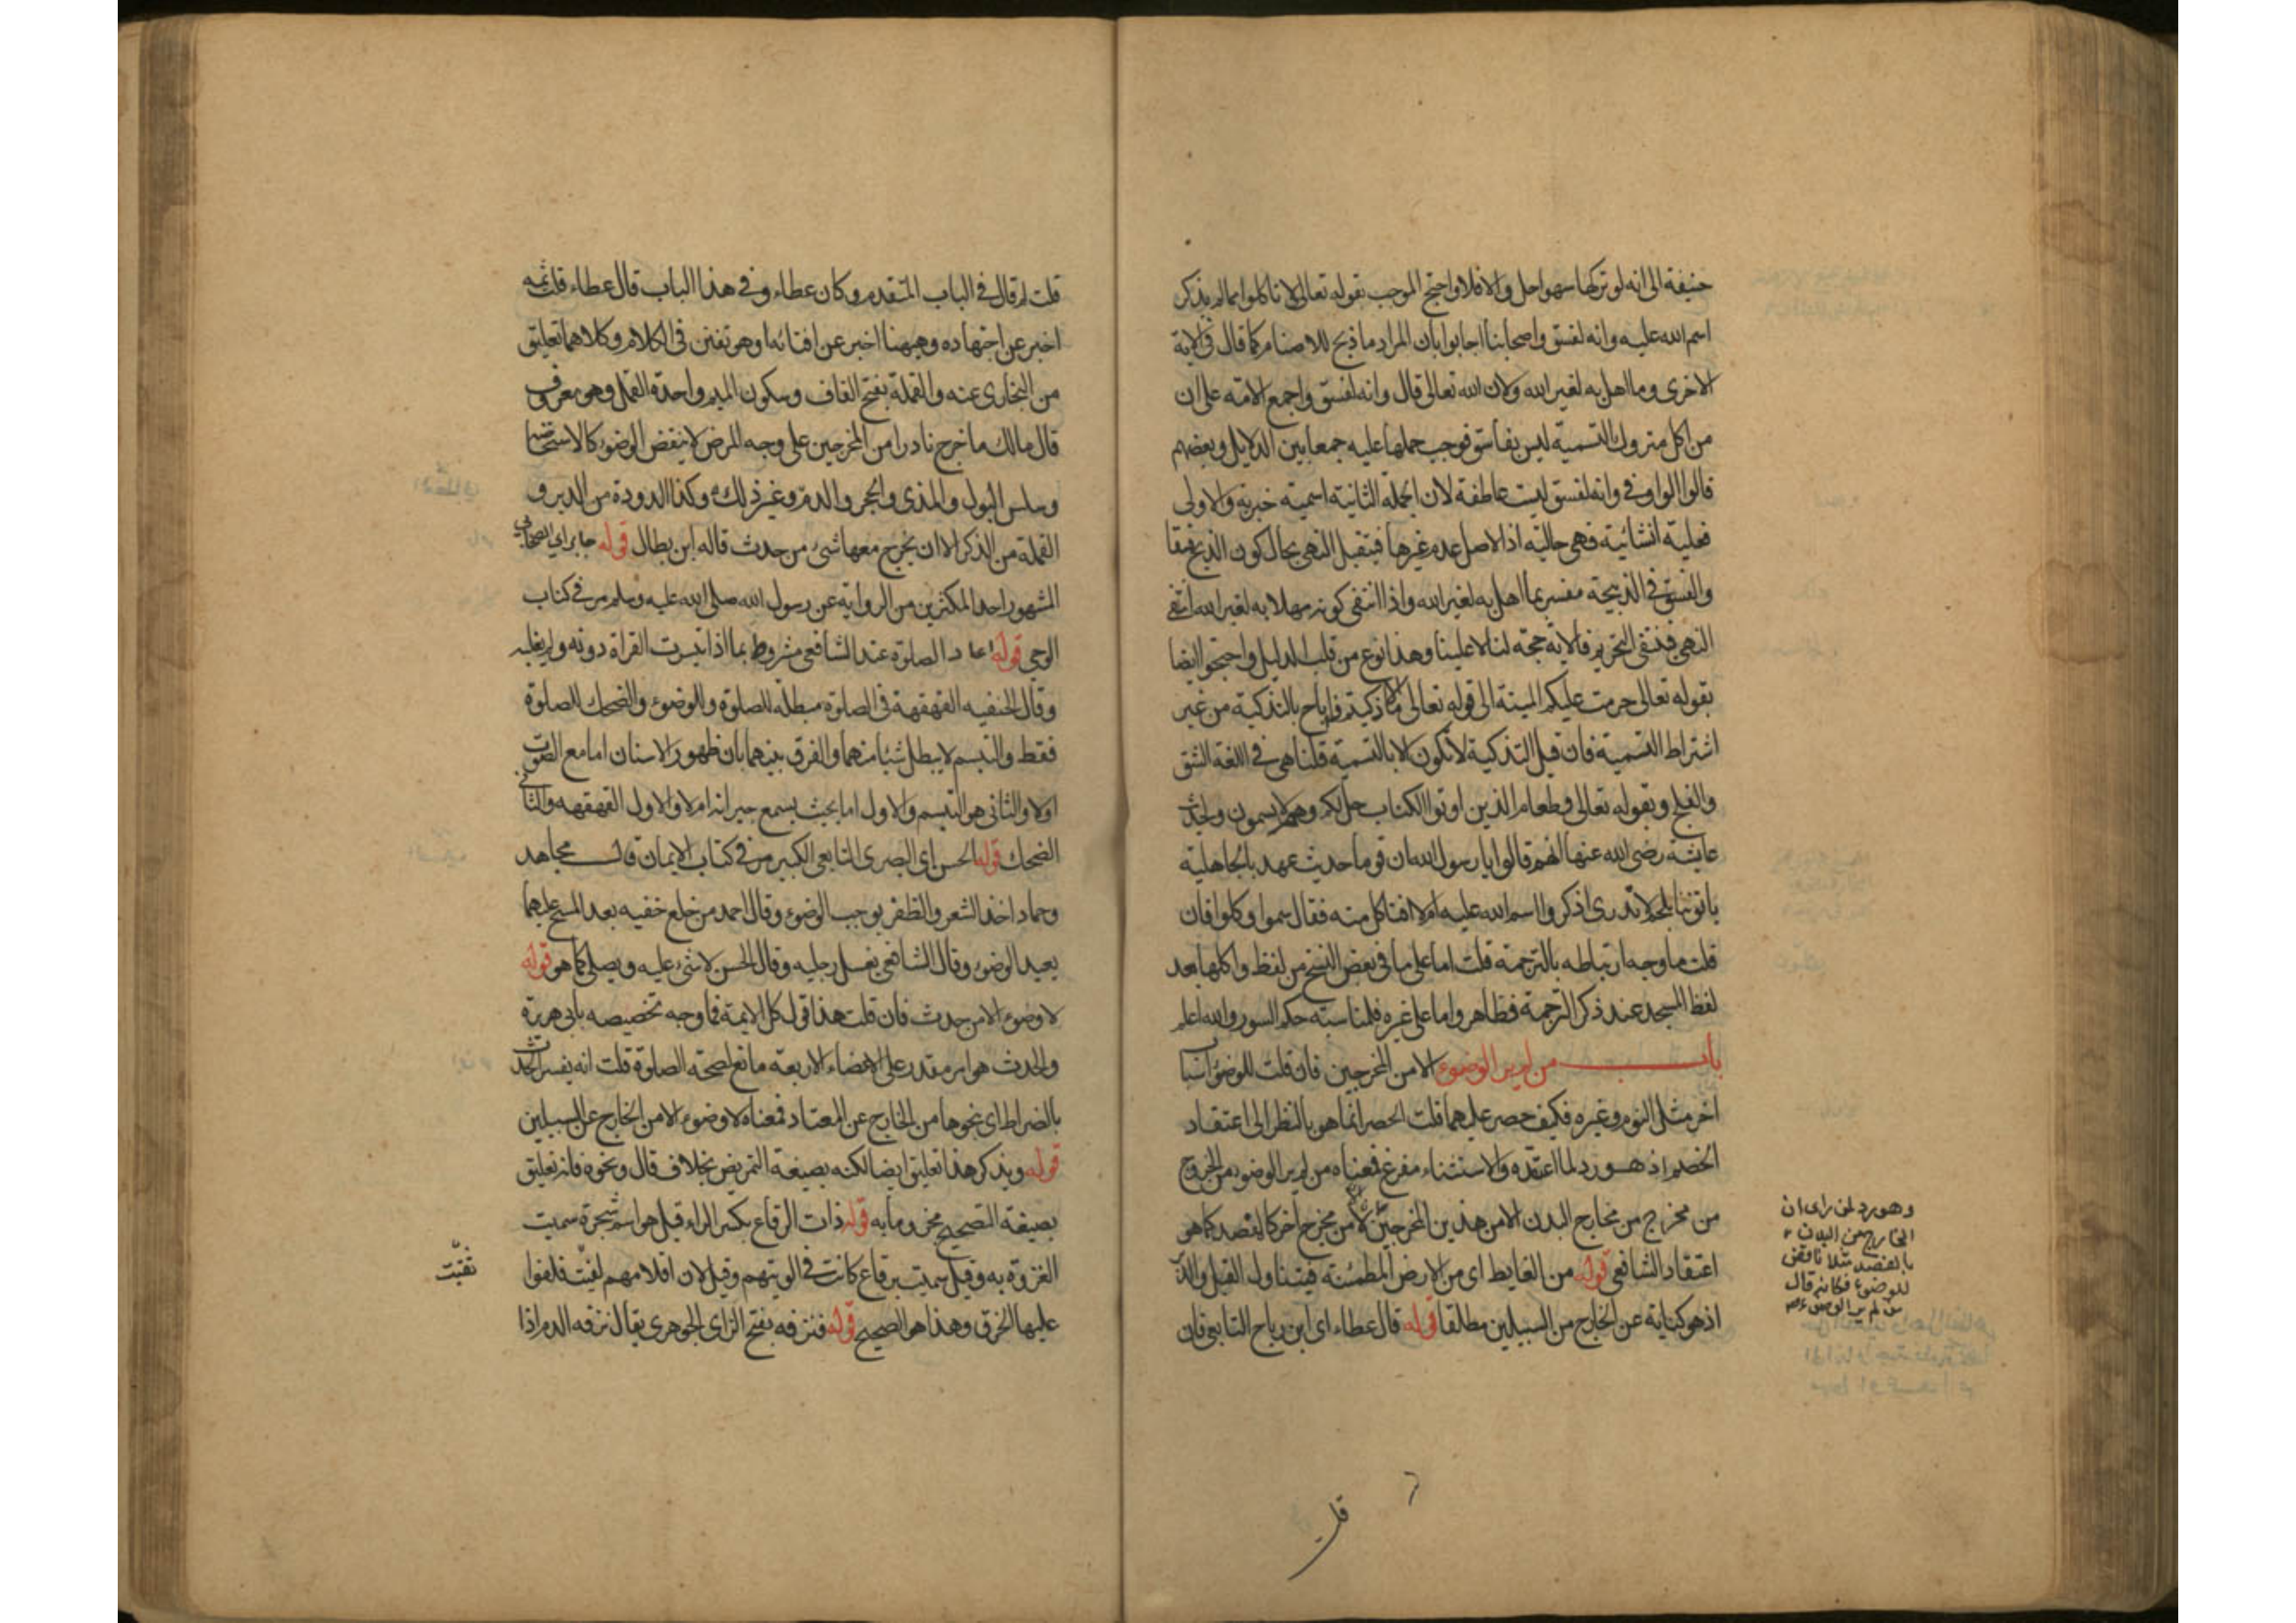 حنيفة الى انه لو تركها سهوا حل والا فلا واحتج الموجب بقوله تعالى لا تاكلوا مما لم يذكر
اسم الله عليه وانه لفسق واصحابنا اجابوا بان المراد ما ذبح للاصنام كما قال في الاية
الاخرى وما اهل به لغير الله ولان الله تعالى قال وانه لفسق واجمع الامة على ان
من اكل متروك التسمية ليس بفاسق فوجب حملها عليه جمعا بين الدلايل وبعضهم
قالوا الواو في وانه لفسق ليست عاطفة لان الجملة الثانية اسمية خبرية والاولى
فعلية انشائية فهي حالية اذ الاصل عدم غيرها فيتقيد النهي بحال كون الذبح فسقا
والفسق في الذبيحة مفسر بما اهل به لغير الله واذا انتفى كونه مهلا به لغير الله انتفى
النهي فينتفي التحريم فالاية حجة لنا لا علينا وهذا نوع من قلب الدليل واحتجوا ايضا
بقوله تعالى حرمت عليكم الميتة الى قوله تعالى الا ما ذكيتم فاباح بالتذكية من غير
اشتراط التسمية فان قيل التذكية لا تكون الا بالتسمية قلنا هي في اللغة الشق
والفتح وبقوله تعالى وطعام الذين اوتوا الكتاب حل لكم وهم لا يسمون وبحديث
عايشة رضي الله عنها انهم قالوا يا رسول الله ان قوما حديث عهد بالجاهلية
ياتوننا بلحم لا ندرى اذكروا اسم الله عليه ام لا افناكل منه فقال سموا وكلوا فان
قلت ما وجه ارتباطه بالترجمة قلت اما على ما في بعض النسخ من لفظ واكلها بعد
لفظ المسجد عند ذكر الترجمة فظاهر واما على غيره فلمناسبته حكم السور والله اعلم
باب من لم ير الوضوء الا من المخرجين فان قلت للوضوء اسباب
اخر مثل النوم وغيره فكيف حصر عليهما قلت الحصر انما هو بالنظر الى اعتقاد
الخصم اذ هو رد لما اعتقده والاستثناء مفرغ فمعناه من لم ير الوضوء من الخروج
من مخرج من مخارج البدن الا من هذين المخرجين لا من مخرج اخر كالفصد كما هو
اعتقاد الشافعي قوله من الغايط اى من الارض المطمئنة فيتناول القبل والدبر
اذ هو كناية عن الخارج من السبيلين مطلقا قوله قال عطاء اى ابن رباح التابعي فان
وهو رد لمن راى ان
الخارج من البدن
بالفصد مثلا ناقض
للوضوء فكانه قال
من لم ير الوضوء
قلت
قلت لم قال في الباب المتقدم وكان عطاء وفي هذا الباب قال عطاء قلت ثمه
اخبر عن اجتهاده وههنا اخبر عن افتائه او هو تفنن في الكلام وكلاهما تعليق
من البخارى عنه والقملة بفتح القاف وسكون الميم واحدة القمل وهو معروف
قال مالك ما خرج نادرا من المخرجين على وجه المرض لا ينقض الوضوء كالاستحاضة
وسلس البول والمذى والحجر والدم وغير ذلك وكذا الدودة من الدبر و
القملة من الذكر الا ان يخرج معها شيء من حدث قاله ابن بطال قوله جابر اى الصحابي
المشهور احد المكثرين من الرواية عن رسول الله صلى الله عليه وسلم مر في كتاب
الوحي قوله اعاد الصلوة عند الشافعي مشروط بما اذا تيسرت القراة دونه ولم يغلبه
وقال الحنفيه القهقهة في الصلوة مبطلة للصلوة وللوضوء والضحك للصلوة
فقط والتبسم لا يبطل شيئا منهما والفرق بينهما بان ظهور الاسنان اما مع الصوت
اولا والثاني هو التبسم والاول اما بحيث يسمع جيرانه ام لا والاول القهقهه والثاني
الضحك قوله الحسن اى البصرى التابعي الكبير مر في كتاب الايمان قال مجاهد
وحماد اخذ الشعر والظفر يوجب الوضوء وقال احمد من خلع خفيه بعد المسح عليهما
يعيد الوضوء وقال الشافعي يغسل رجليه وقال الحسن لا شيء عليه ويصلي كما هو قوله
لا وضوء الا من حدث فان قلت هذا قول كل الايمة فما وجه تخصيصه بابي هريرة
والحدث هو امر مقدر على الاعضاء الاربعة مانع لصحة الصلوة قلت انه يفسر الحدث
بالضراط اى نحوها من الخارج عن المعتاد فمعناه لا وضوء الا من الخارج عن السبيلين
قوله ويذكر هذا تعليق ايضا لكنه بصيغة التمريض بخلاف قال ونحوه فانه تعليق
بصيغة التصحيح مجزوما به قوله ذات الرقاع بكسر الراء قيل هو اسم شجرة سميت
الغزوة به وقيل سميت برقاع كانت في الويتهم وقيل لان اقدامهم نقبت فلفوا
عليها الخرق وهذا هو الصحيح قوله فنزفه بفتح الزاى الجوهرى يقال نزفه الدم اذا
نقبت